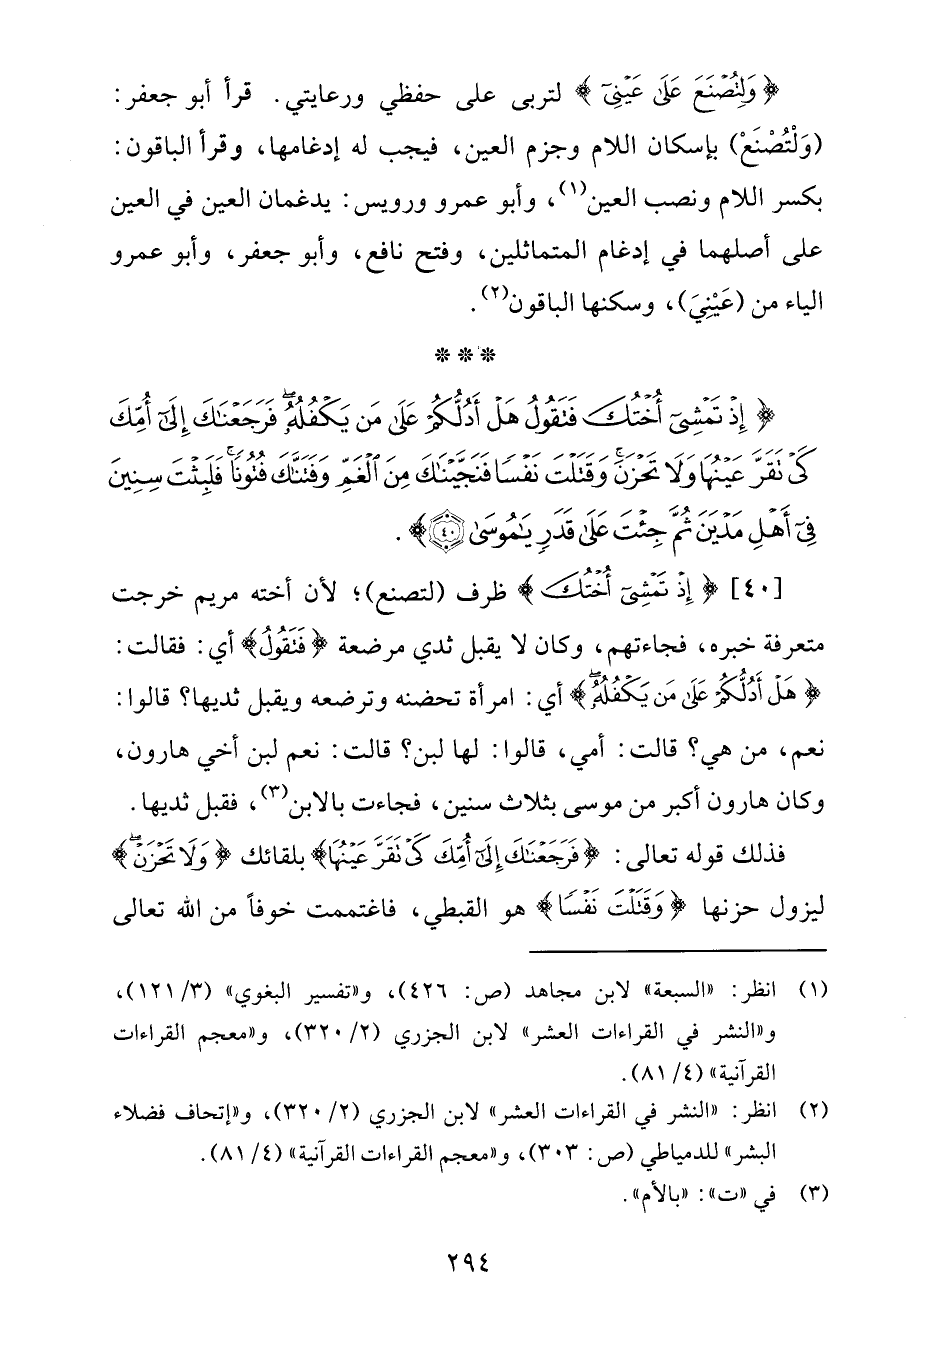 ﴿ وَلِتُصْنَعَ عَلَىٰ عَيْنِيٓ ﴾ لتربى على حفظي ورعايتي. قرأ أبو جعفر:
(وَلْتُصْنَعْ) بإسكان اللام وجزم العين، فيجب له إدغامها، وقرأ الباقون:
بكسر اللام ونصب العين(١)، وأبو عمرو ورويس: يدغمان العين في العين
على أصلهما في إدغام المتماثلين، وفتح نافع، وأبو جعفر، وأبو عمرو
الياء من (عَيْنِيَ)، وسكنها الباقون(٢).
* * *
﴿ إِذْ تَمْشِيٓ أُخْتُكَ فَتَقُولُ هَلْ أَدُلُّكُمْ عَلَىٰ مَن يَكْفُلُهُۥۖ فَرَجَعْنَٰكَ إِلَىٰٓ أُمِّكَ
كَيْ تَقَرَّ عَيْنُهَا وَلَا تَحْزَنَۚ وَقَتَلْتَ نَفْسًا فَنَجَّيْنَٰكَ مِنَ ٱلْغَمِّ وَفَتَنَّٰكَ فُتُونًاۚ فَلَبِثْتَ سِنِينَ
فِيٓ أَهْلِ مَدْيَنَ ثُمَّ جِئْتَ عَلَىٰ قَدَرٍ يَٰمُوسَىٰ ٤٠﴾.
[٤٠] ﴿ إِذْ تَمْشِيٓ أُخْتُكَ ﴾ ظرف (لتصنع)؛ لأن أخته مريم خرجت
متعرفة خبره، فجاءتهم، وكان لا يقبل ثدي مرضعة ﴿فَتَقُولُ﴾ أي: فقالت:
﴿ هَلْ أَدُلُّكُمْ عَلَىٰ مَن يَكْفُلُهُۥۖ﴾ أي: امرأة تحضنه وترضعه ويقبل ثديها؟ قالوا:
نعم، من هي؟ قالت: أمي، قالوا: لها لبن؟ قالت: نعم لبن أخي هارون،
وكان هارون أكبر من موسى بثلاث سنين، فجاءت بالابن(٣)، فقبل ثديها.
فذلك قوله تعالى: ﴿فَرَجَعْنَٰكَ إِلَىٰٓ أُمِّكَ كَيْ تَقَرَّ عَيْنُهَا﴾ بلقائك ﴿وَلَا تَحْزَنَۖ﴾
ليزول حزنها ﴿وَقَتَلْتَ نَفْسًا﴾ هو القبطي، فاغتممت خوفاً من الله تعالى
(١) انظر: «السبعة» لابن مجاهد (ص: ٤٢٦)، و«تفسير البغوي» (٣/ ١٢١)،
و«النشر في القراءات العشر» لابن الجزري (٢/ ٣٢٠)، و«معجم القراءات
القرآنية» (٤/ ٨١).
(٢) انظر: «النشر في القراءات العشر» لابن الجزري (٢/ ٣٢٠)، و«إتحاف فضلاء
البشر» للدمياطي (ص: ٣٠٣)، و«معجم القراءات القرآنية» (٤/ ٨١).
(٣) في «ت»: «بالأم».
٢٩٤